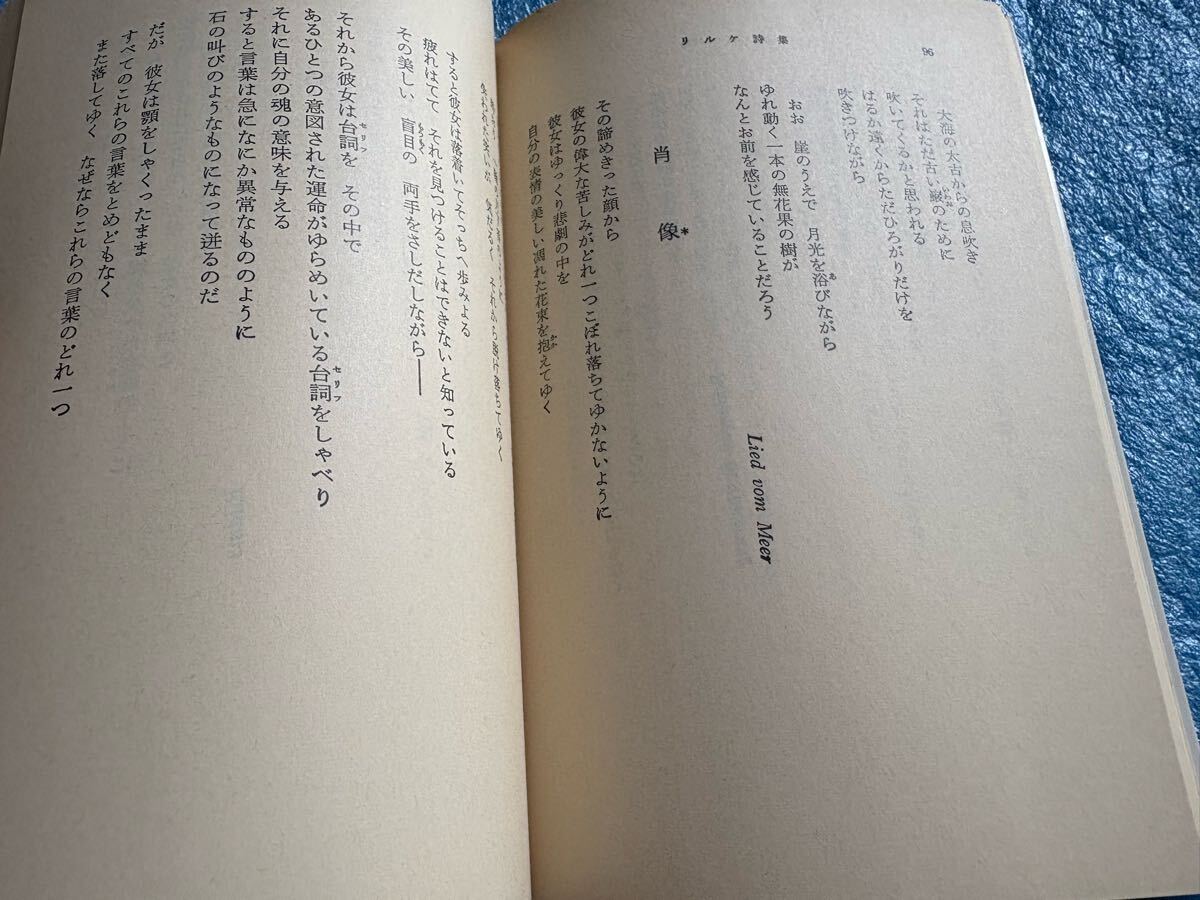 リルケ詩集
96
大海の太古からの息吹き
それはただ古い巌のために
吹いてくるかと思われる
はるか遠くからただひろがりだけを
吹きつけながら
おお 崖のうえで 月光を浴びながら
ゆれ動く一本の無花果の樹が
なんとお前を感じていることだろう
Lied vom Meer
肖像*
その諦めきった顔から
彼女の偉大な苦しみがどれ一つこぼれ落ちてゆかないように
彼女はゆっくり悲劇の中を
自分の表情の美しい凋れた花束を抱えてゆく
それから脱け落ちてゆく
すると彼女は落着いてそっちへ歩みよる
疲れはてて それを見つけることはできないと知っている
その美しい 盲目の 両手をさしだしながら――
それから彼女は台詞を その中で
あるひとつの意図された運命がゆらめいている台詞をしゃべり
それに自分の魂の意味を与える
すると言葉は急になにか異常なもののように
石の叫びのようなものになって迸るのだ
だが 彼女は顎をしゃくったまま
すべてのこれらの言葉をとめどもなく
また落してゆく なぜならこれらの言葉のどれ一つ